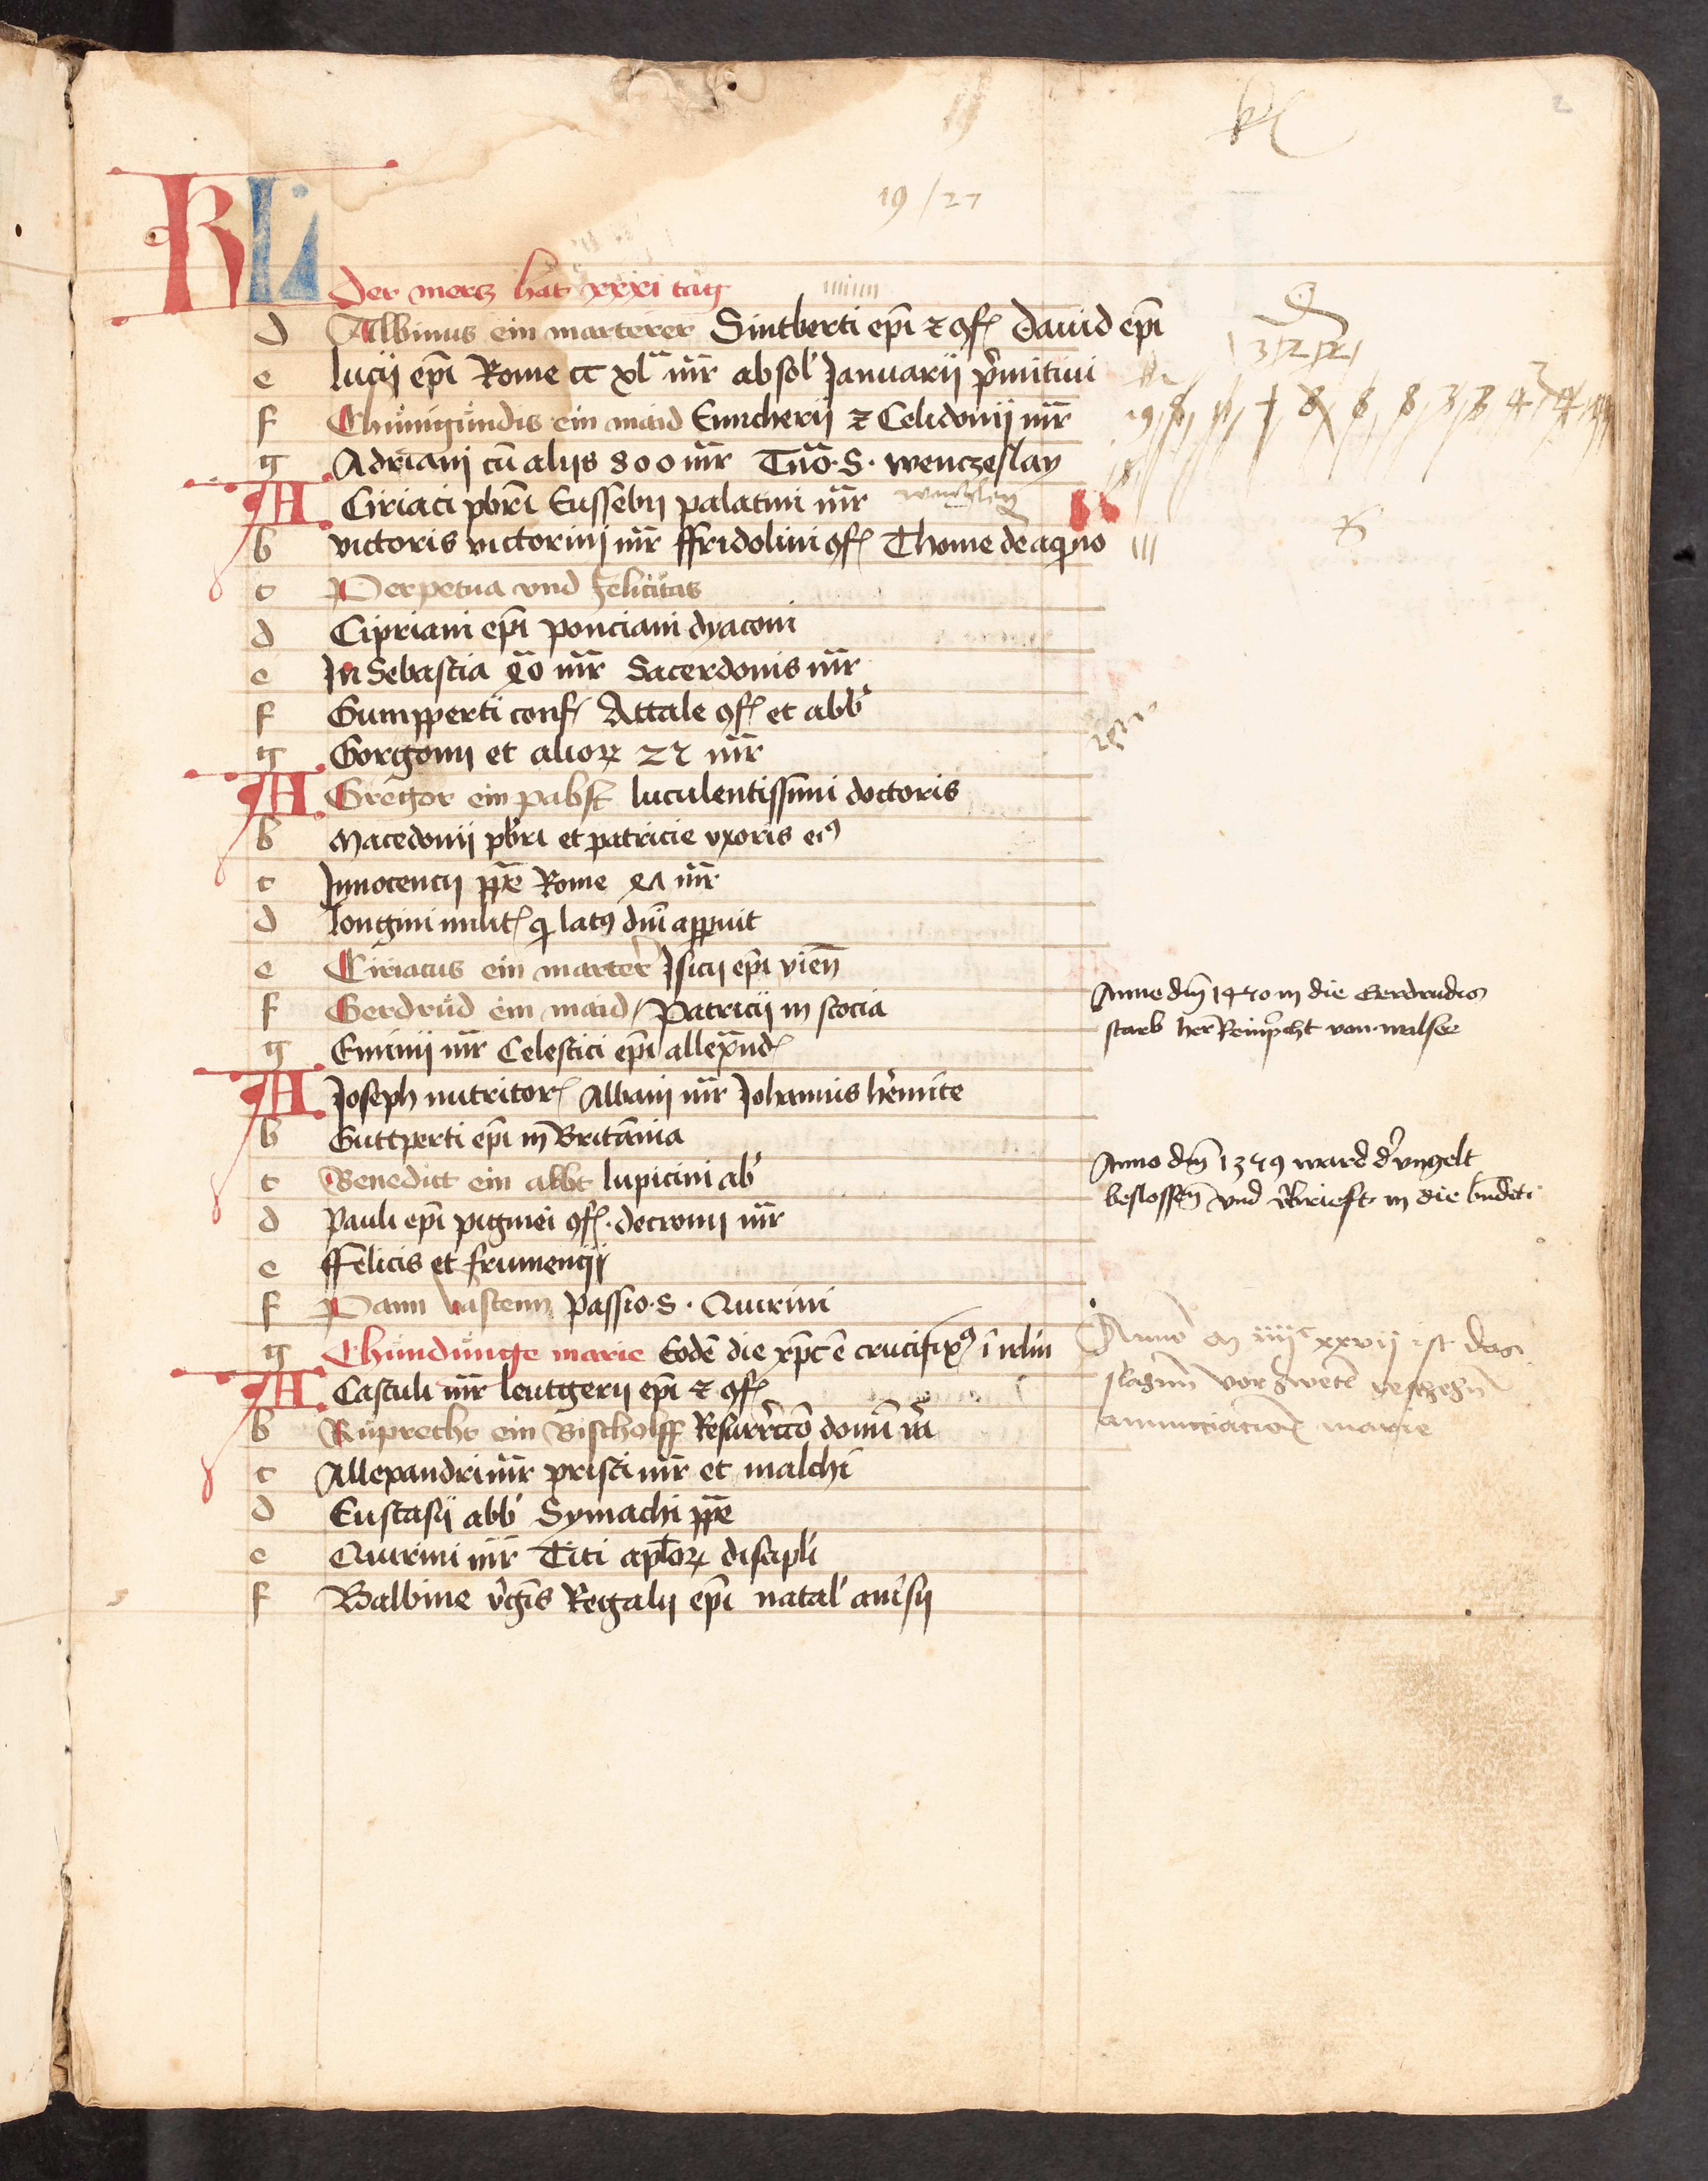 kl
19/27
KL
Der mercz hat xxxi tag
d Albinus ein marterer Sintberti ep̄i ⁊ ꝯf dauid ep̄i
e lucij ep̄i Rome cc xl mr̄ absol' Januarij p̓mitiui
f Chünigundis ein maid Emicherij ⁊ Celidonij mr̄
g Adriani cū alijs 800 mr̄ Tn̄o · S · wenczeslay
A Ciriaci pbr̄i Eussebij palatini mr̄
b victoris victorinij mr̄ ffridolini ꝯf Thome de aqͥno
c Perpetua vnd Felicitas
d Cipriani ep̄i ponciani dyaconi
e In Sebastia 40 mr̄ Sacerdonis mr̄
f Gumpperti conf Attale ꝯf et abb'
g Gorgonij et alioꝝ 22 mr̄
A Gregor ein pabst luculentissimi doctoris
b Macedonij pbr̄i et patricie vxoris eiꝰ
c Innocencij pp̄e Rome 47 mr̄
d longini milit qͥ latꝰ dn̄i appuit
e Ciriacus ein marter̓ Isicij ep̄i vien̄
f Gerdrüd ein maid / Patricij in scocia
g Eminij mr̄ Celestici ep̄i allexand
A Joseph nutritor Albani mr̄ Johannis h̓emite
b Guttperti ep̄i in Britānia
c Benedict ein abbt lupicini ab'
d Pauli ep̄i pigmei ꝯf · decronij mr̄
e ffelicis et frumencij
f Dann vastenn passio · S · Quirini
g Chündünge marie Eodē die xp̄c ē crucifixꝰ ī irl̄m
A Castuli mr̄ leutgerij ep̄i ⁊ ꝯf
b Ruprecht ein Bischolff Resurr̓ccō domī nr̄i
c Allexandri mr̄ prisci mr̄ et malchi
d Eustasij abb' Symachi pp̄e
e Quirini mr̄ Titi apl̄oꝝ discipli
f Balbine v̓gīs Regalij ep̄i natal'
Anno dm̄ 1450 in die Gerdrudis
starb her Reinp̓cht von walsee
Anno dm̄ 1359 ward d̓ vngelt
beslossen̄ vnd in die bn̄dcti
Anno m iiijᶜ xxvij ist das
slagnn̄ vor zwetl geschegn̄
annunciacio marie